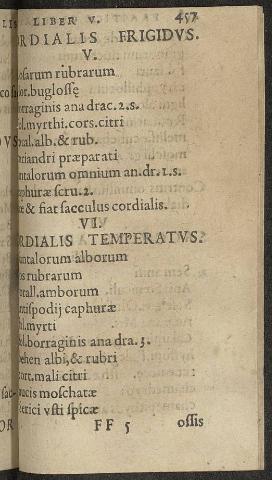 LIS LIBER V. 457
ORDIALIS FRIGIDVS.
V.
osarum rubrarum
lor.buglossę
orraginis ana drac.2.s.
ol.myrthi.cors.citri
ral.alb.& rub.
oriandri præparati
ntalorum omnium an.dr.1.s.
aphuræ scru.2.
& fiat sacculus cordialis.
VI.
ORDIALIS TEMPERATVS.
antalorum alborum
os rubrarum
rall.amborum
ntispodij caphuræ
ol.myrti
ol.borraginis ana dra.3.
ehen albi,& rubri
cort.mali citri
ucis moschatæ
erici vsti spicæ
FF 5 ossis